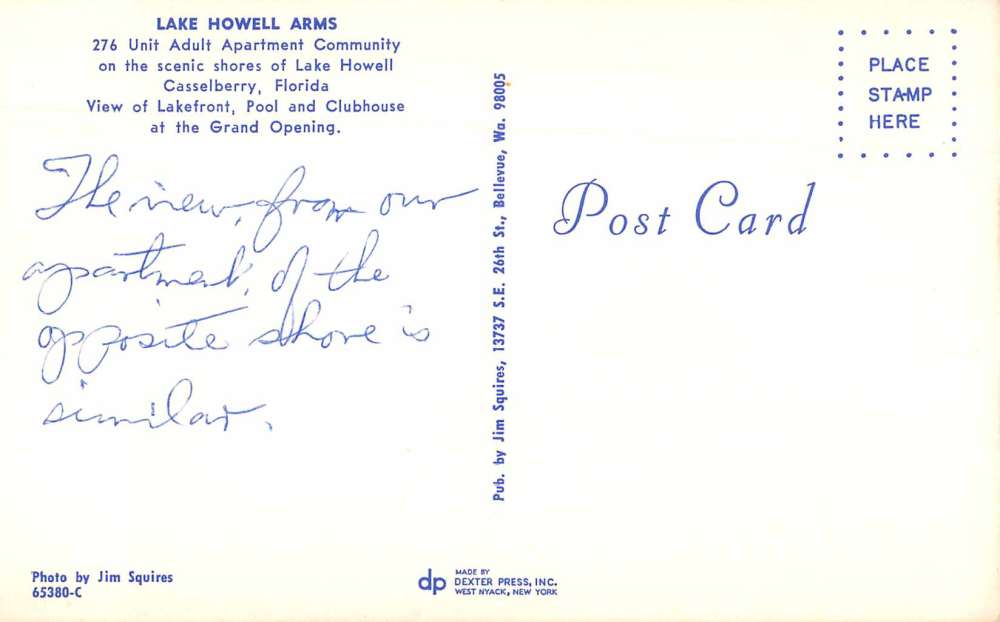 LAKE HOWELL ARMS
276 Unit Adult Apartment Community
on the scenic shores of Lake Howell
Casselberry, Florida
View of Lakefront, Pool and Clubhouse
at the Grand Opening.
The view, from our
apartment, of the
opposite shore is
similar.
Photo by Jim Squires
65380-C
Pub. by Jim Squires, 13737 S.E. 26th St., Bellevue, Wa. 98005
dp
MADE BY
DEXTER PRESS, INC.
WEST NYACK, NEW YORK
PLACE
STAMP
HERE
Post Card